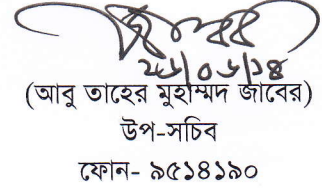 ২৬/০৬/১৪
(আবু তাহের মুহাম্মদ জাবের)
উপ-সচিব
ফোন- ৯৫১৪১৯০